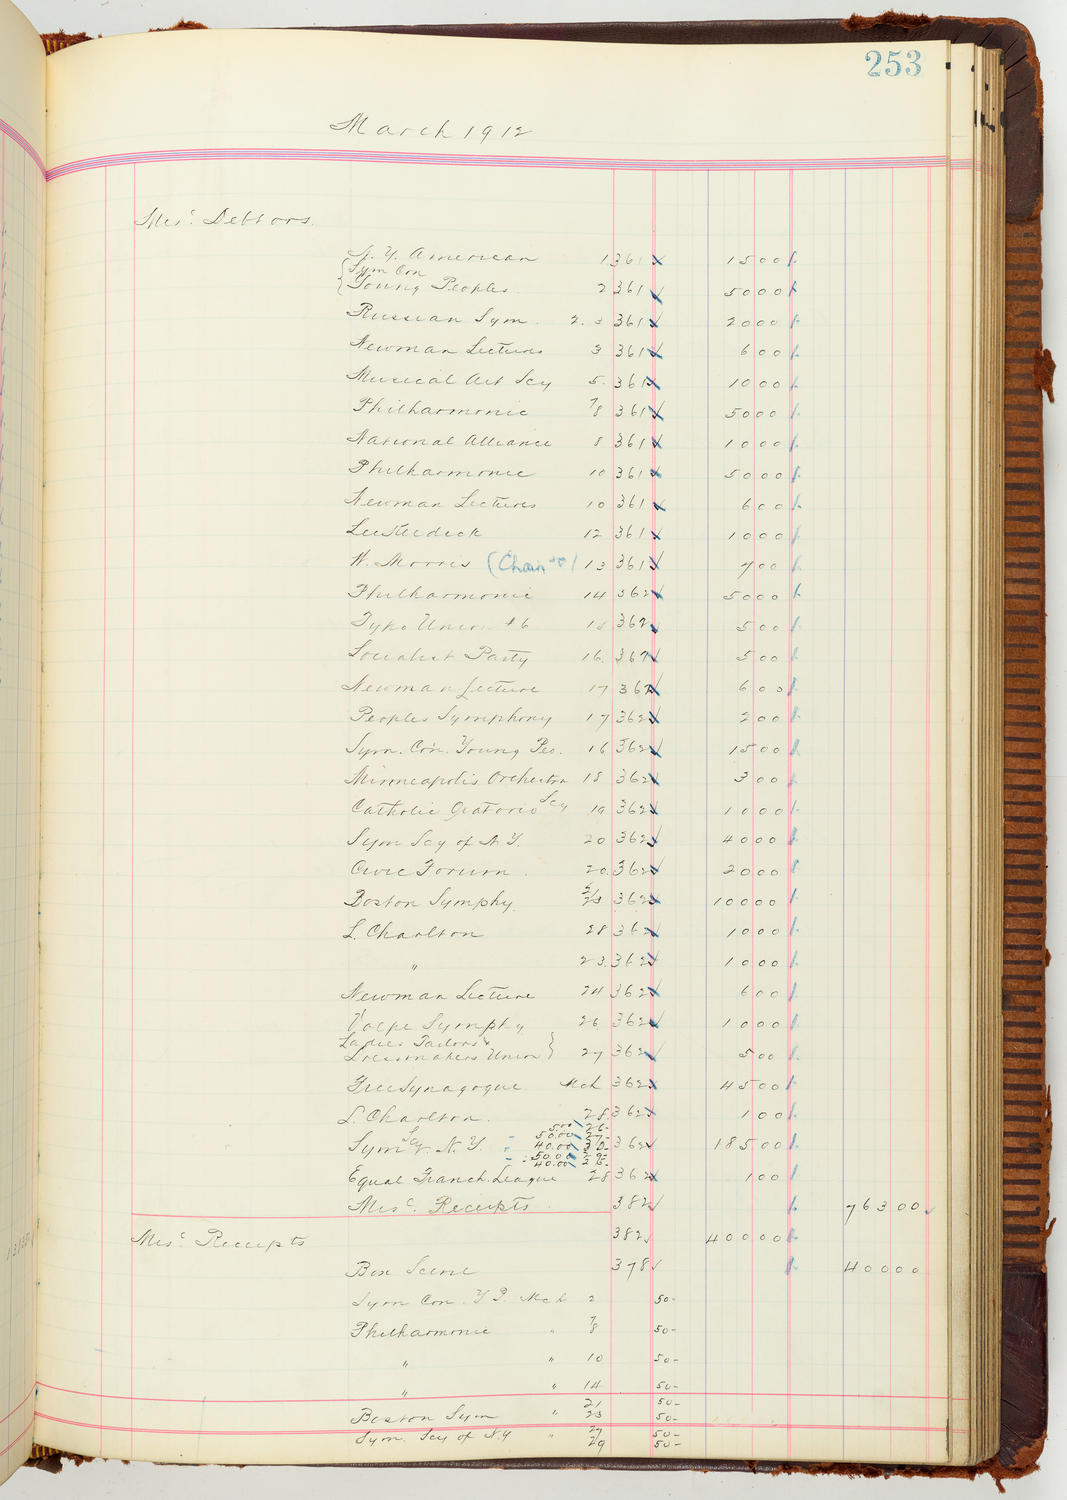 253
March 1912
Misc. Debtors.
N. Y. American 1 361 1500
Sym Con
Young Peoples 2 361 5000
Russian Sym. 2. 3 361 2000
Newman Lectures 3 361 600
Musical Art Scy 5. 361 1000
Philharmonic 7/8 361 5000
National Alliance 8 361 1000
Philharmonic 10 361 5000
Newman Lectures 10 361 600
12 361 1000
W. Morris (Chair) 13 361 700
Philharmonic 14 362 5000
Typo Union #6 362 500
Socialist Party 16. 362 500
Newman Lecture 17 362 600
Peoples Symphony 17 362 200
Sym. Con. Young Peo. 16 362 1500
Minneapolis Orchestra 18 362 300
Catholic Oratorio Scy 19 362 1000
Sym Scy of N. Y. 20 362 4000
Civic Forum. 20. 362 2000
Boston Symphy. 21/23 362 10000
L. Charlton 28 362 1000
" 23. 362 1000
Newman Lecture 24 362 600
Volpe Symphy 26 362 1000
Ladies Tailors &
Dressmakers Union 27 362 500
Free Synagogue. Mch 362 4500
L. Charlton. 28 362 100
Sym Scy. N. Y. 362 18500
Equal Franch. League 28 362 100
Misc. Receipts 382 76300
Misc. Receipts 382 40000
Box Scene 378 40000
Sym Con. Y P. Mch 2 50-
Philharmonic " 7/8 50-
" " 10 50-
" " 14 50-
21 50-
Boston Sym " 23 50-
27 50-
Sym. Scy of N.Y " 29 50-